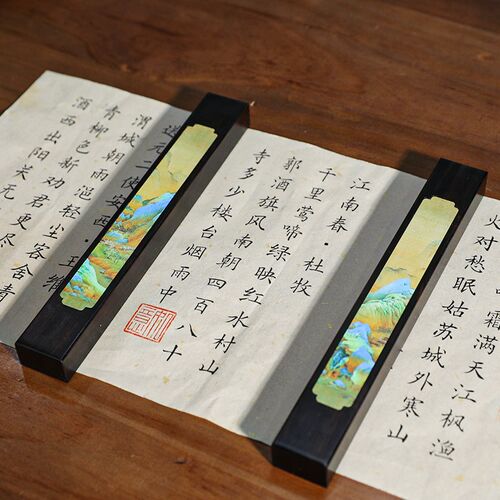 霜满天江枫渔
火对愁眠姑苏城外寒山
江南春·杜牧
千里莺啼绿映红水村山
郭酒旗风南朝四百八十
寺多少楼台烟雨中
送元二使安西·王维
渭城朝雨浥轻尘客舍青
青柳色新劝君更尽
酒西出阳关无